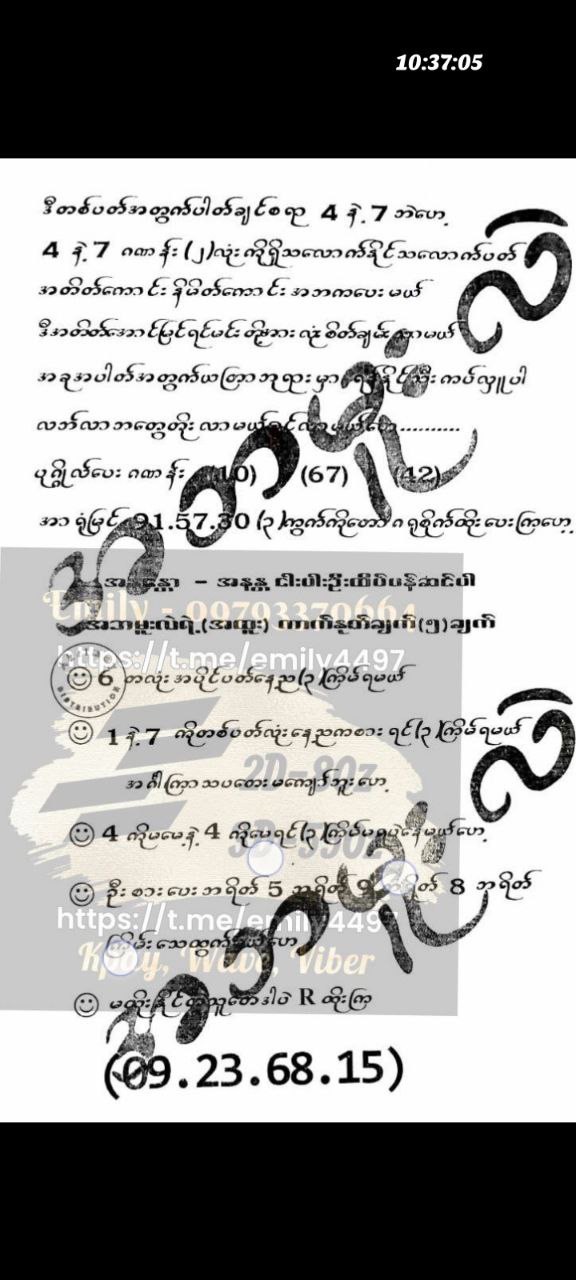 10:37:05
ဒီတစ်ပတ်အတွက်ပါတ်ချင်စရာ 4 နဲ့ 7 ဘဲဟေ့
4 နဲ့ 7 ဂဏန်း (၂)လုံးကိုရှိသလောက်နိုင်သလောက်ပတ်
အတိတ်ကောင်းနိမိတ်ကောင်းအဘကပေးမယ်
ဒီအတိတ်အောင်မြင်ရင်မင်းတို့အားလုံးစိတ်ချမ်းသာမယ်
အခုအပါတ်အတွက်ယတြာဘုရားမှာ ကပ်လှူပါ
လာဘ်လာဘတွေတိုးလာမယ် ..........
ပုဂ္ဂိုလ်ပေးဂဏန်း (10) (67) (42)
အာရုံမြင် 91.57.30 (၃)ကွက်ကိုတော့ဂရုစိုက်ထိုးပေးကြဟေ့
အနန္တော - အနန္တ ငါးပါးဦးထိပ်ပန်ဆင်ပါ
အဘမှူးလဲရဲ့(အထူး) တွက်ချက်(၅)ချက်
Emily - 09793370664
https://t.me/emily4497
6 တလုံးအပိုင်ပတ်နေ့ည(၃)ကြိမ်ရမယ်
DISTRIBUTION
1 နဲ့ 7 ကိုတစ်ပတ်လုံးနေ့ညကစားရင်(၃)ကြိမ်ရမယ်
2D-80z
အင်္ဂါကြာသပတေးမကျော်ဘူးဟေ့
4 ကိုမမေ့နဲ့ 4 ကိုမေ့ရင်(၃)ကြိမ်မရပဲနေမယ်ဟေ့
ဦးစားပေးဘရိတ် 5 ဘရိတ် 9 ဘရိတ် 8 ဘရိတ်
https://t.me/emily4497
ကြိမ်းသေထွက်မယ်ဟေ့
Kpay, Wave, Viber
မထိုးနိုင်တဲ့သူတွေဒါပဲ R ထိုးကြ
(09.23.68.15)